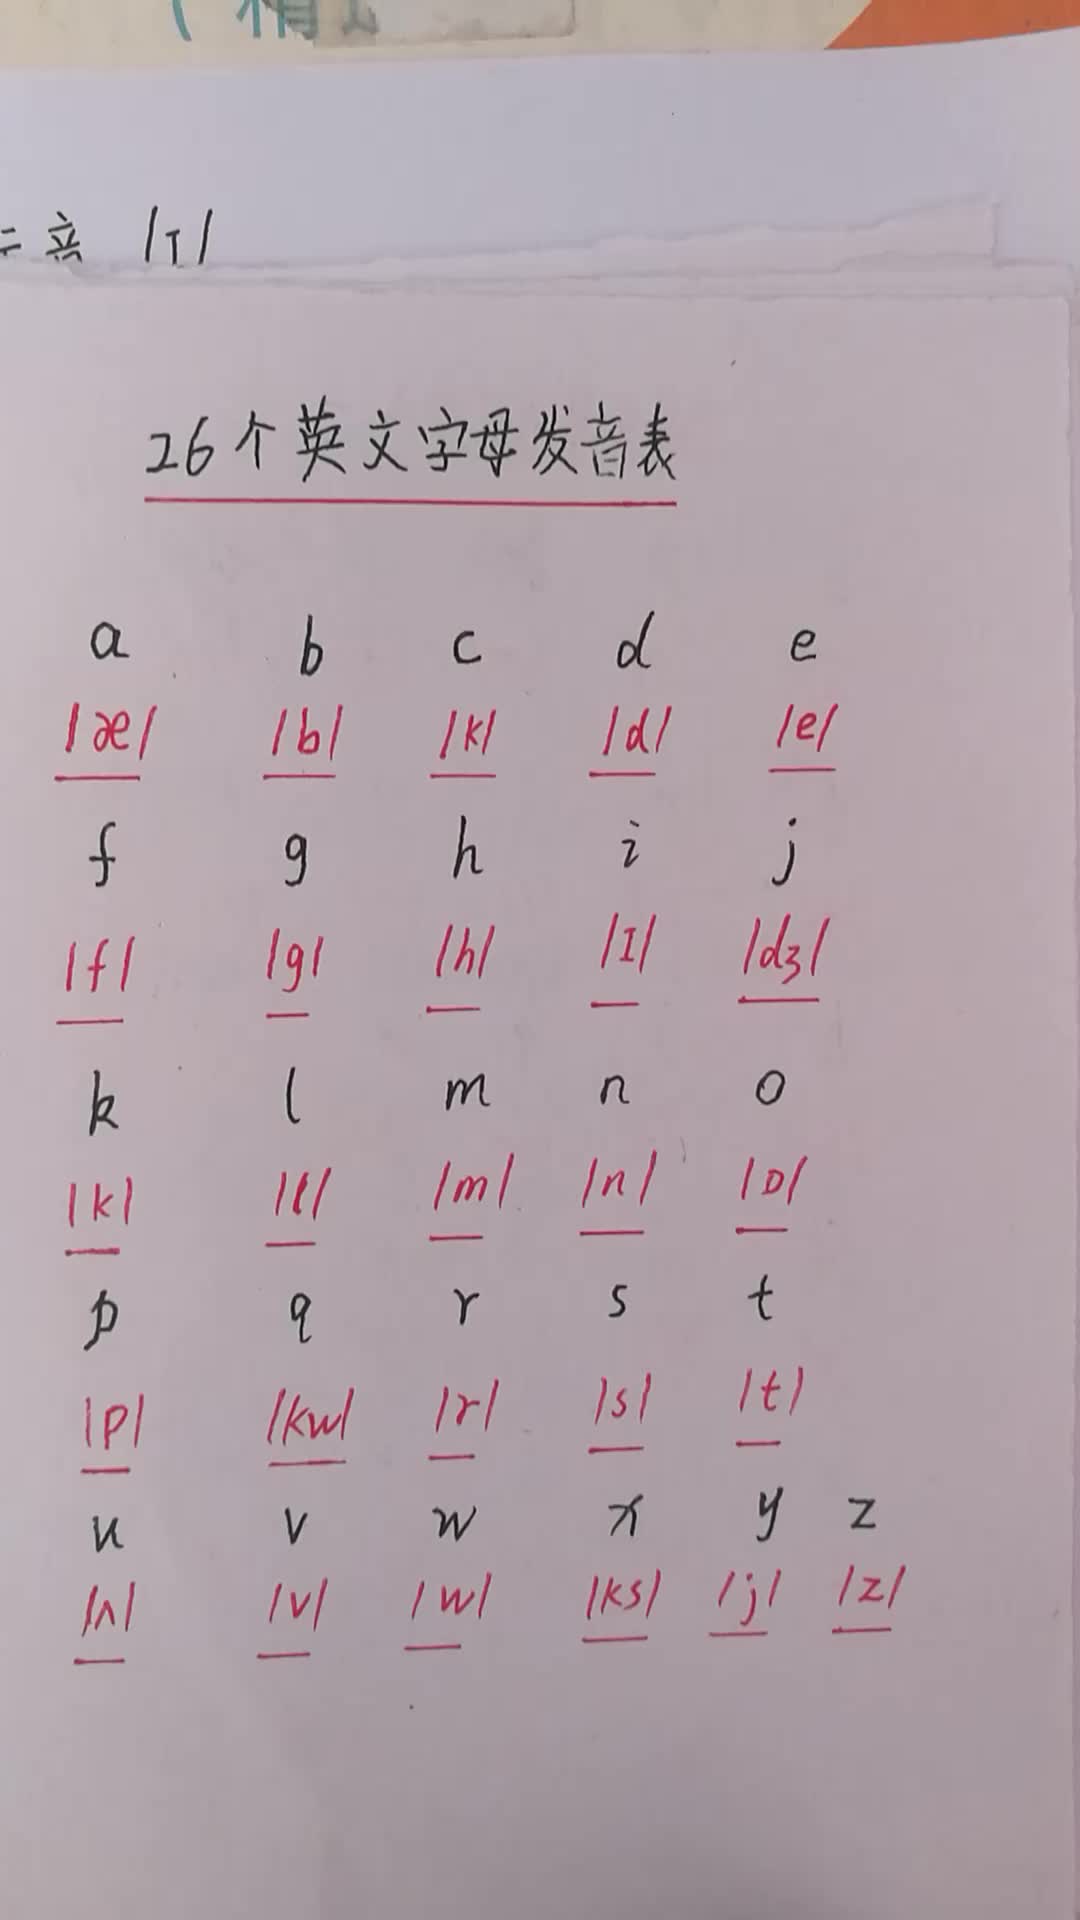 音 /I/
26个英文字母发音表
a b c d e
/æ/ /b/ /k/ /d/ /e/
f g h i j
/f/ /g/ /h/ /I/ /dʒ/
k l m n o
/k/ /l/ /m/ /n/ /ɒ/
p q r s t
/p/ /kw/ /r/ /s/ /t/
u v w x y z
/ʌ/ /v/ /w/ /ks/ /j/ /z/